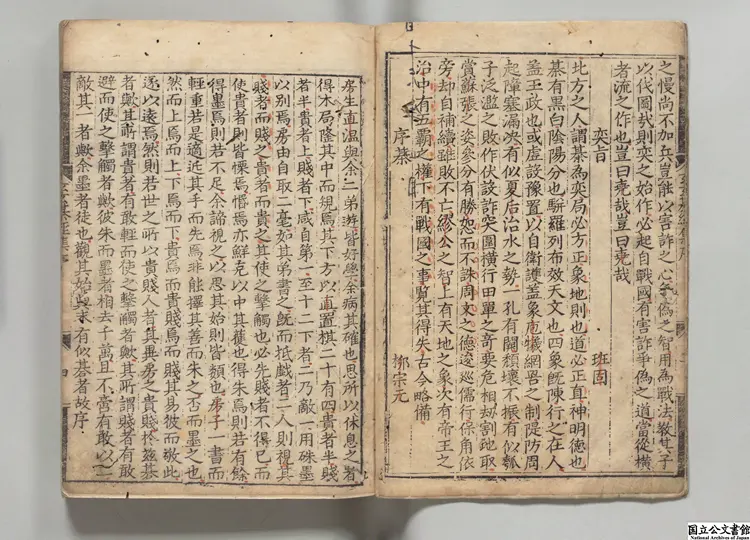 之慢尚不加兵豈能以害詐之心爭偽之智用為戰法教其子
以代圓哉則奕之始作必起自戰國有害詐爭偽之道當從橫
者流之作也豈曰堯哉豈曰堯哉
奕旨　班固
北方之人謂棊為奕局必方正象地則也道必正直神明德也
棊有黑白陰陽分也駢羅列布效天文也四象旣陳行之在人
盖王政也或虛設豫置以自衛護盖象庖犧網罟之制隄防周
起障塞漏决有似夏后治水之勢一孔有闕頹壞不振有似瓠
子泛濫之敗作伏設詐突圍橫行田單之奇要危相刼割地取
賞蘇張之姿參分有勝恕而不誅周文之德逡巡儒行保角依
旁却自補續雖敗不亡繆公之智上有天地之象次有帝王之
治中有五霸之權下有戰國之事覧其得失古今略備
序棊　柳宗元
房生直温與余二弟游皆好學余病其確也思所以休息之者
得木局隆其中而規焉其下方以直置棋二十有四貴者半賤
者半貴曰上賤曰下咸自第一至十二下者二乃敵一用硃墨
以別焉房由自取二毫如其弟書之旣而抵戲者二人則視其
賤者而賤之貴者而貴之其使之擊觸也必先賤者不得已而
使貴者則皆慄焉惽焉亦鮮克以中其獲也得朱焉則若有餘
得墨焉則若不足余諦視之以思其始則皆類也房子一書而
輕重若是適近其手而先焉非能擇其善而朱之否而墨之也
然而上焉而上下焉而下貴焉而貴賤焉而賤其易彼而敬此
遂以遠焉然則若世之所以貴賤人者有異房之貴賤玆棊
者歟其所謂貴者有敢輕而使之擊觸者歟其所謂賤者有敢
避而使之擊觸者歟彼朱而墨者相去千萬且不啻有敢以二
敵其一者歟余墨者徒也觀其始與末有似棊者故序
玄玄棊經集序
四
国立公文書館
National Archives of Japan